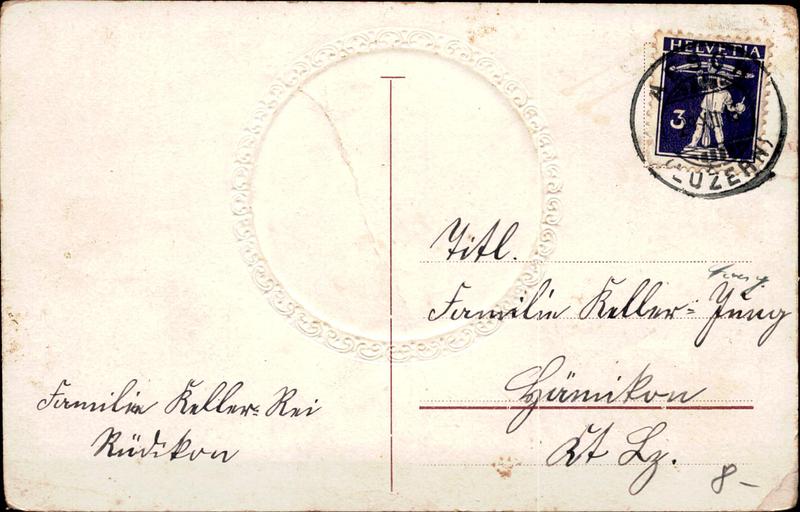 HELVETIA
3
(LUZERN)
Titl.
Familie Keller- Jung
Hämikon
Kt Lz.
Familie Keller- Rei
Rüdikon
8-